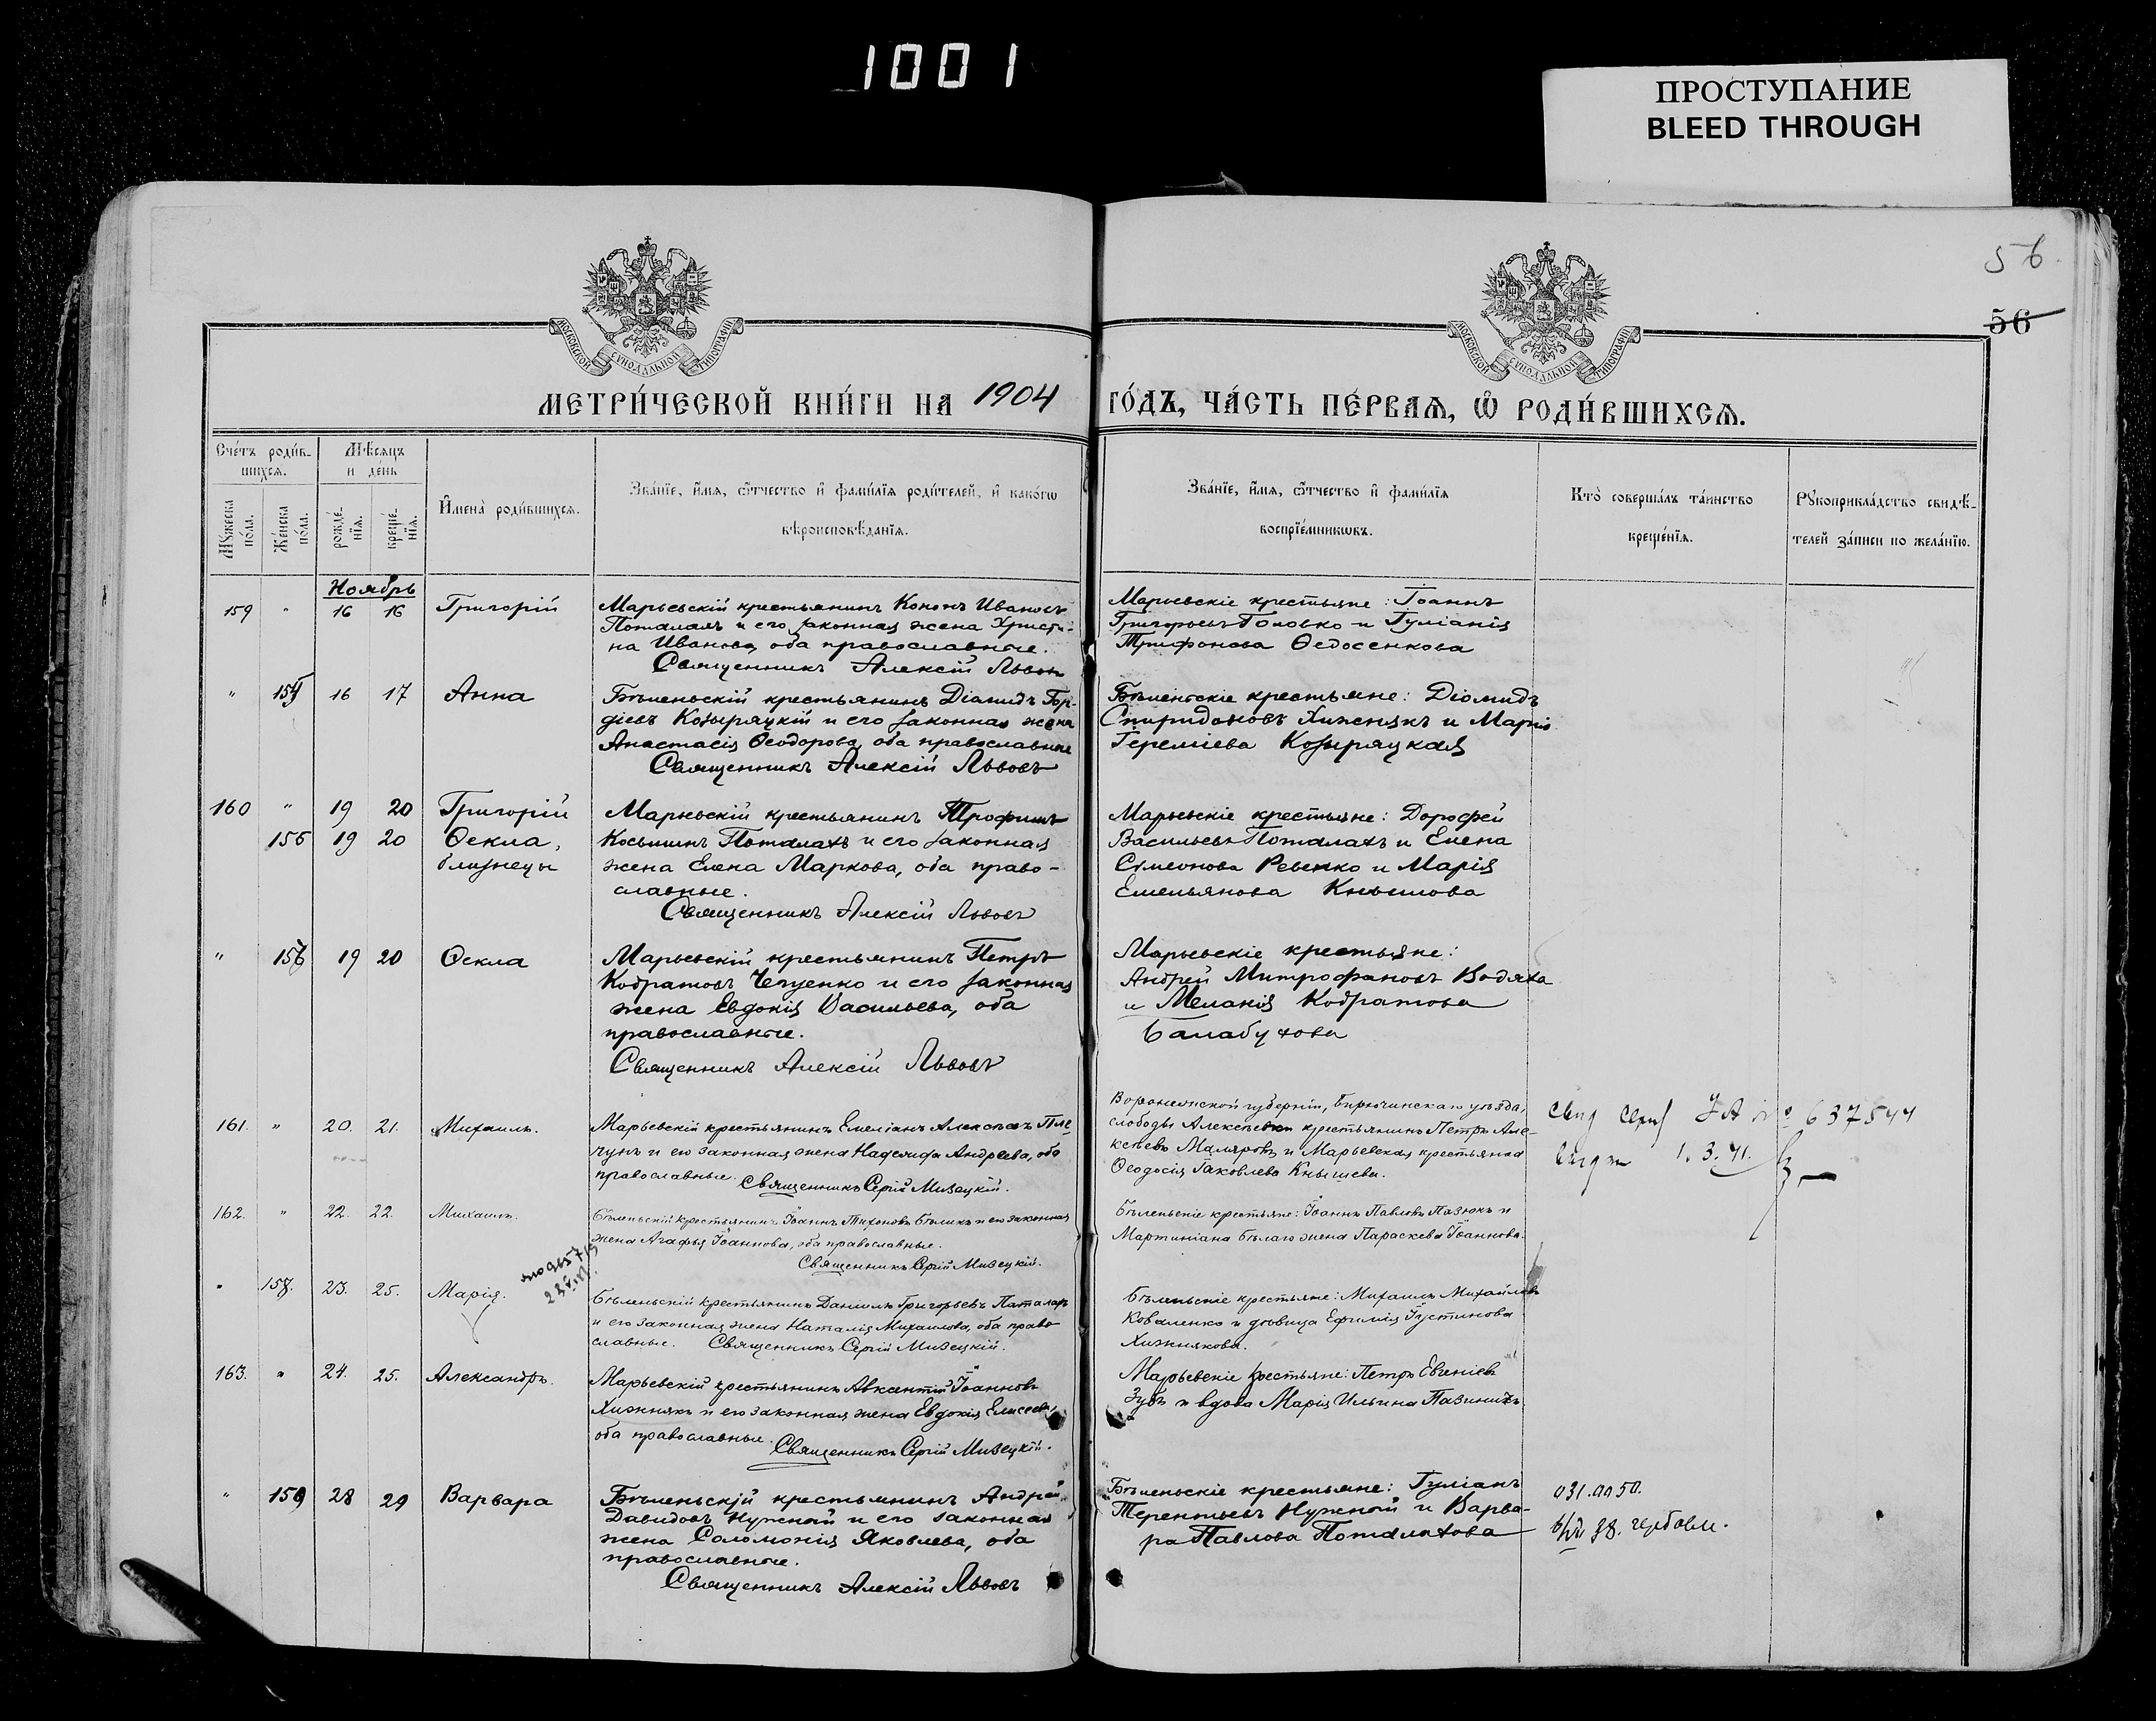 1001
ПРОСТУПАНИЕ
BLEED THROUGH
56
56
МОСКОВСКОЙ СУНОДАЛЬНОЙ ТИПОГРАФІИ
МОСКОВСКОЙ СУНОДАЛЬНОЙ ТИПОГРАФІИ
МЕТРИ́ЧЕСКОЙ КНИ́ГИ НА 1904 ГО́ДЪ, ЧА́СТЬ ПЕ́РВАѦ, Ѡ҆ РОДИ́ВШИХСѦ.
Сче́тъ роди́в-
шихсѧ.
Мѣ́сѧцъ
и де́нь
Мꙋ́жеска
по́ла.
Же́нска
по́ла.
рожде́-
нїѧ.
креще́-
нїѧ.
И҆мена̀ роди́вшихсѧ.
Зва́нїе, и҆́мѧ, ѻ҆́тчество и҆ фами́лїѧ роди́телей, и҆ како́гѡ
вѣроисповѣ́данїѧ.
Зва́нїе, и҆́мѧ, ѻ҆́тчество и҆ фами́лїѧ
воспрїе́мникѡвъ.
Кто̀ соверша́лъ та́инство
креще́нїѧ.
Рꙋкоприкла́дство свидѣ́-
телей за́писи по жела́нїю.
Ноябрь
159 " 16 16 Григорій
Марьевскій крестьянинъ Кононъ Ивановъ
Поталахъ и его законная жена Христи-
на Иванова, оба православные.
Священникъ Алексій Львовъ
Марьевскіе крестьяне: Іоаннъ
Григорьевъ Головко и Іуліанія
Трифонова Ѳедосенкова
" 154 16 17 Анна
Бѣленьскій крестьянинъ Діамидъ Гор-
діевъ Козыряцкій и его законная жена
Анастасія Ѳеодорова, оба православные
Священникъ Алексій Львовъ
Бѣленьскіе крестьяне: Діомидъ
Спиридоновъ Хижнякъ и Марія
Іереміева Козыряцкая
160 " 19 20 Григорій
155 19 20 Ѳекла,
близнецы
Марьевскій крестьянинъ Трофимъ
Косьминъ Поталахъ и его законная
жена Елена Маркова, оба право-
славные.
Священникъ Алексій Львовъ
Марьевскіе крестьяне: Дорофей
Васильевъ Поталахъ и Елена
Симеонова Ревенко и Марія
Емельянова Кнышова
" 156 19 20 Ѳекла
Марьевскій крестьянинъ Петръ
Кодратовъ Чепуенко и его законная
жена Евдокія Васильева, оба
православные.
Священникъ Алексій Львовъ
Марьевскіе крестьяне:
Андрей Митрофановъ Водяха
и Меланія Кодратова
Балабухова
161. " 20. 21. Михаилъ.
Марьевскій крестьянинъ Емеліанъ Алексѣевъ Пле-
чунъ и его законная жена Надежда Андреева, оба
православные. Священникъ Сергій Мизецкій.
Воронежской губерніи, Бирючинскаго уѣзда,
слободы Алексѣевки крестьянинъ Петръ Але-
ксѣевъ Маляровъ и Марьевская крестьянка
Ѳеодосія Іаковлева Кнышева.
№ 637544
1. 3. 41.
162. " 22. 22. Михаилъ.
Бѣленьскій крестьянинъ Іоаннъ Тихоновъ Бѣликъ и его законная
жена Агафья Іоаннова, оба православные.
Священникъ Сергій Мизецкій.
Бѣленьскіе крестьяне: Іоаннъ Павловъ Пазюкъ и
Мартиніана Бѣлаго жена Параскева Іоаннова.
" 157. 23. 25. Марія.
Бѣленьскій крестьянинъ Даніилъ Григорьевъ Паталахъ
и его законная жена Наталія Михаилова, оба право-
славные. Священникъ Сергій Мизецкій.
Бѣленьскіе крестьяне: Михаилъ Михайловъ
Коваленко и дѣвица Ефимія Іустинова
Хижнякова.
163. " 24. 25. Александръ.
Марьевскій крестьянинъ Авксентій Іоанновъ
Хижнякъ и его законная жена Евдокія Елисеева,
оба православные. Священникъ Сергій Мизецкій.
Марьевскіе крестьяне: Петръ Евгеніевъ
Зубъ и вдова Марія Ильина
" 158 28 29 Варвара
Бѣленьскій крестьянинъ Андрей
Давидовъ Нужный и его законная
жена Соломонія Яковлева, оба
православные.
Священникъ Алексій Львовъ
Бѣленьскіе крестьяне: Іуліанъ
Терентьевъ Нужный и Варва-
ра Павлова Поталахова